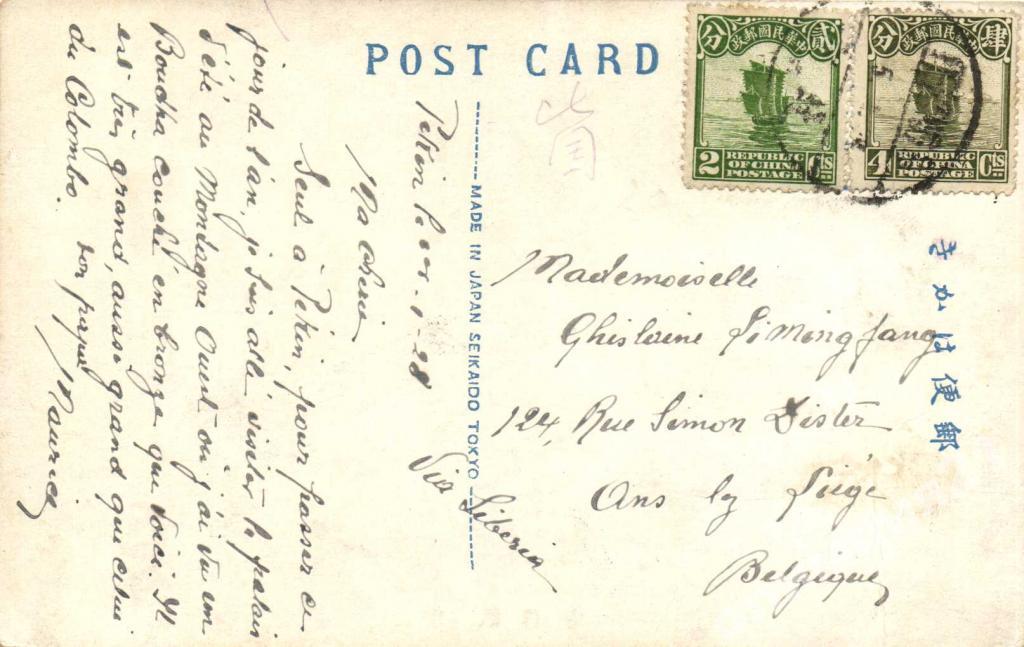 POST CARD
中華民國郵政
分 貳
2 Cts
REPUBLIC
OF CHINA
POSTAGE
中華民國郵政
分 肆
4 Cts
REPUBLIC
OF CHINA
POSTAGE
きかは便郵
MADE IN JAPAN SEIKAIDO TOKYO
Pékin le 1-1-28
Ma chérie
Seul à Pékin, pour passer ce
jour de l'an, je suis allé visiter le palais
d'été au Montagne Ouest où j'ai vu un
Boudha couché en bronze que voici. Il
est très grand, aussi grand que celui
du Colombo. ton papa Maurice
Via Siberia
Mademoiselle
Ghislaine Li Ming Jang
124, Rue Simon Dister
Ans lg Liège
Belgique